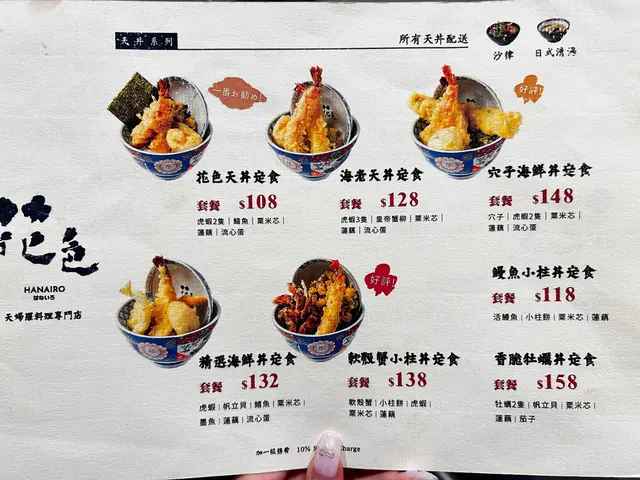 天丼系列
所有天丼配送
沙律
日式清湯
一番お勧め!
好評!
花色天丼定食
套餐 $108
虎蝦2隻|鱚魚|粟米芯|
蓮藕|流心蛋
海老天丼定食
套餐 $128
虎蝦3隻|皇帝蟹柳|粟米芯|
蓮藕|流心蛋
穴子海鮮丼定食
套餐 $148
穴子|虎蝦2隻|粟米芯|
蓮藕|流心蛋
花色
HANAIRO
はないろ
天婦羅料理專門店
好評!
鰻魚小柱丼定食
套餐 $118
活鰻魚|小柱餅|粟米芯|蓮藕
精選海鮮丼定食
套餐 $132
虎蝦|帆立貝|鱚魚|粟米芯|
墨魚|蓮藕|流心蛋
軟殼蟹小柱丼定食
套餐 $138
軟殼蟹|小柱餅|虎蝦|
粟米芯|蓮藕
香脆牡蠣丼定食
套餐 $158
牡蠣2隻|帆立貝|粟米芯|
蓮藕|茄子
加一服務費 10% Charge